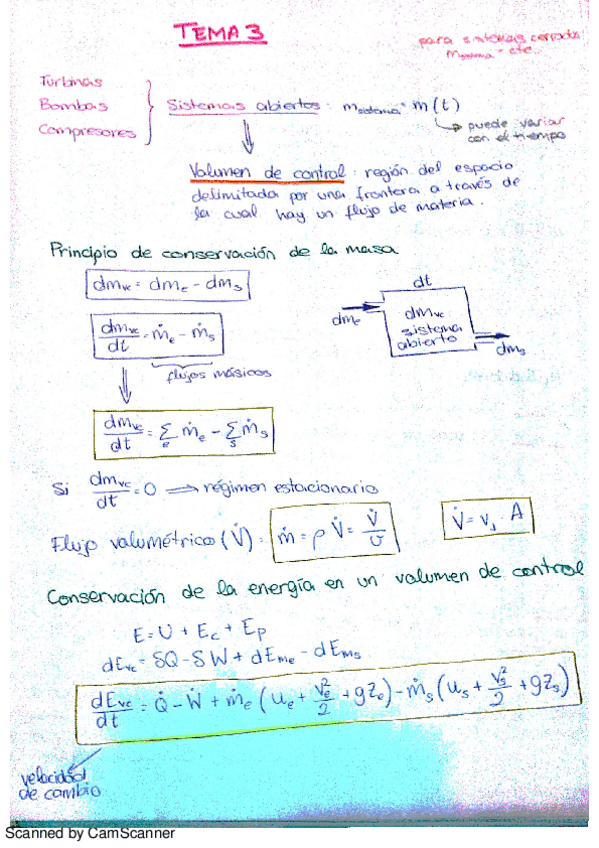 TEMA 3
para sistemas cerrados
m_sistema = cte...
Turbinas
Bombas
Compresores
Sistemas abiertos : m_sistema = m(t)
puede variar
con el tiempo
Volumen de control : región del espacio
delimitada por una frontera a través de
la cual hay un flujo de materia.
Principio de conservación de la masa
dm_vc = dm_e - dm_s
dm_vc/dt = ṁ_e - ṁ_s
flujos másicos
dt
dm_e
dm_vc
sistema
abierto
dm_s
dm_vc/dt = Σ_e ṁ_e - Σ_s ṁ_s
Si dm_vc/dt = 0 ⟹ régimen estacionario
Flujo volumétrico (V̇) : ṁ = ρ V̇ = V̇/v
V̇ = v_s . A
Conservación de la energía en un volumen de control
E = U + E_c + E_p
dE_vc = δQ - δW + dE_me - dE_ms
dE_vc/dt = Q̇ - Ẇ + ṁ_e (u_e + v_e²/2 + gz_e) - ṁ_s (u_s + v_s²/2 + gz_s)
velocidad
de cambio
Scanned by CamScanner